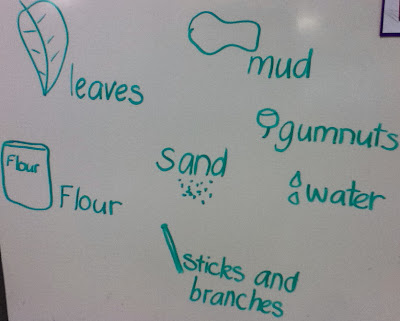 leaves
mud
gumnuts
sand
Flour
Flour
water
sticks and
branches